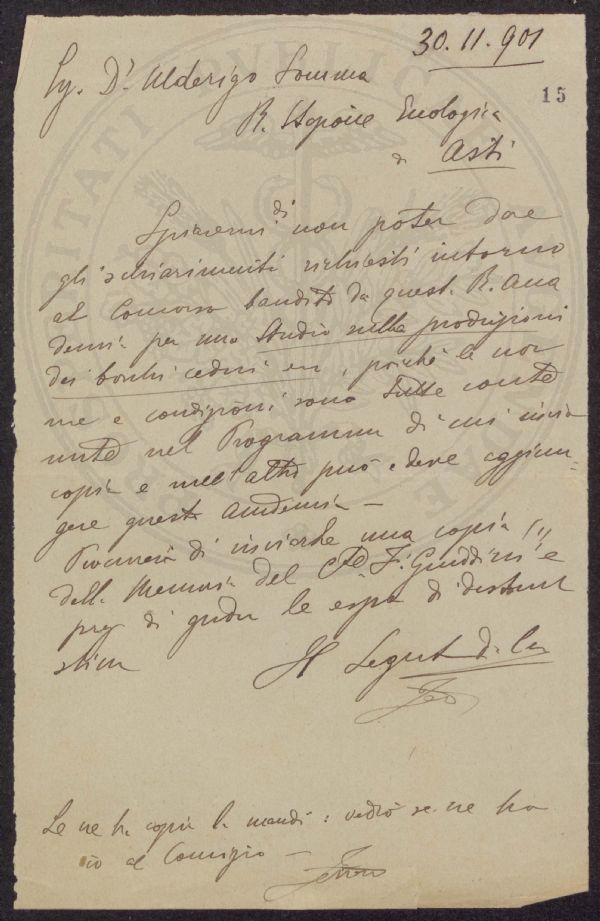 30.11.901
15
Sig. Dr. Ulderigo Somma
R. Stazione Enologica
di Asti
Spiacemi di non poter dare
gli schiarimenti richiesti intorno
al Concorso bandito da questa R. Acca
demia per uno Studio sulla produzioni
dei boschi cedui, poiché le nor
me e condizioni sono tutte conte
nute nel Programma di cui invia
copia e null'altro può e deve aggiun-
gere questa Accademia —
di inviarle una copia
della Memoria del F.
di gradir le espr. di distint
stima
Il Segret
Se ne ha copia la mandi: vedrò se ne ha
al Comizio —